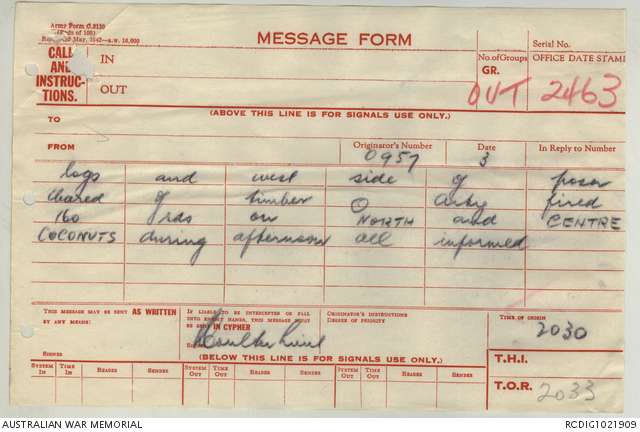 Army Form C.2130
(Pads of 100)
MESSAGE FORM
Serial No.
CALL
AND
INSTRUC-
TIONS.
IN
OUT
No. of Groups
GR.
OFFICE DATE STAMP
OUT 2463
(ABOVE THIS LINE IS FOR SIGNALS USE ONLY.)
TO
FROM
Originator's Number
Date
In Reply to Number
0957
3
logs and west side of
cleared of timber O Arty fired
160 rds on NORTH and CENTRE
COCONUTS during afternoon all informed
THIS MESSAGE MAY BE SENT AS WRITTEN
BY ANY MEANS.
SIGNED
IF LIABLE TO BE INTERCEPTED OR FALL
INTO ENEMY HANDS, THIS MESSAGE MUST
BE SENT IN CYPHER
ORIGINATOR'S INSTRUCTIONS
DEGREE OF PRIORITY
TIME OF ORIGIN
2030
(BELOW THIS LINE IS FOR SIGNALS USE ONLY.)
T.H.I.
SYSTEM IN TIME IN READER SENDER SYSTEM OUT TIME OUT READER SENDER SYSTEM OUT TIME OUT READER SENDER
T.O.R. 2033
AUSTRALIAN WAR MEMORIAL
RCDIG1021909